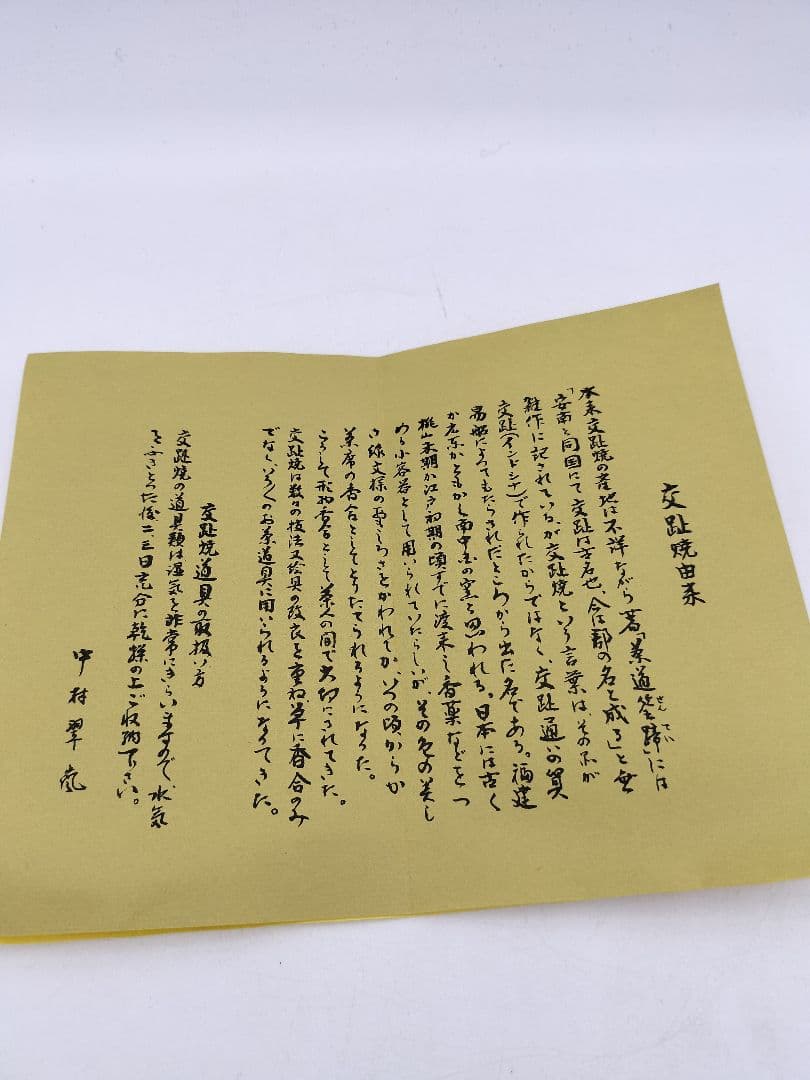 交趾焼由来
本来交趾焼の産地は不詳ながら著「茶道筌蹄には
「安南と同国にて交趾は古名也、今は郡の名と成る」と無
雑作に記されているが交趾焼という言葉は、その品が
交趾(インドシナ)で作られたからではなく、交趾通いの貿
易船によってもたらされたところから出た名である。福建
か広東かともかく南中国の窯と思われる。日本には古く
桃山末期か江戸初期の頃すでに渡来し香薬などをつ
める小容器として用いられていたらしいが、その色の美し
さ線文様のおもしろさをかわれてか、いつの頃からか
茶席の香合としてとりたてられるようになった。
こうして形物香合として茶人の間で大切にされてきた。
交趾焼は数々の技法又絵具の改良を重ね、単に香合のみ
でなく、いろ〱のお茶道具に用いられるようになってきた。
交趾焼道具の取扱い方
交趾焼の道具類は湿気を非常にきらいますので、水気
をふきとった後二、三日充分に乾操の上ご収納下さい。
中村翠嵐
さんてい